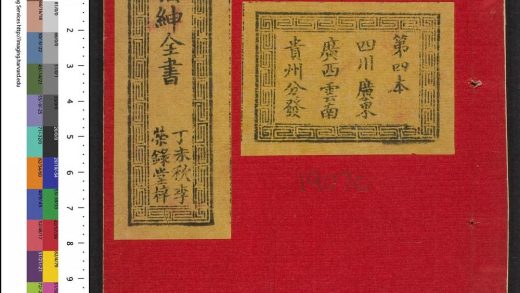 第四本
四川廣東
廣西雲南
貴州分發
紳全書
丁未秋季
榮錄堂梓
Services http://imaging.harvard.edu
2
3
4
5
6
7
8
9